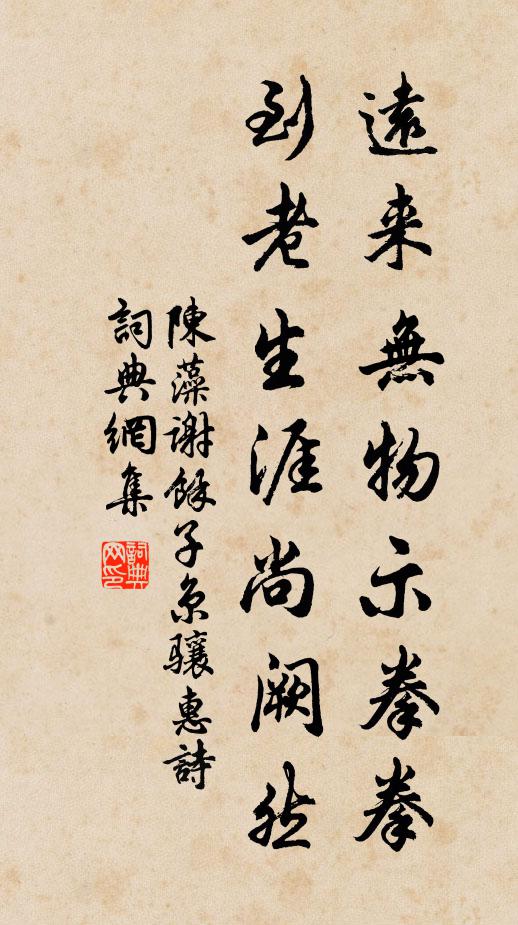 遠来無物示拳拳
到老生涯尚闕然
陳藻謝餘子京驤惠詩
詞典網集
詞典网印